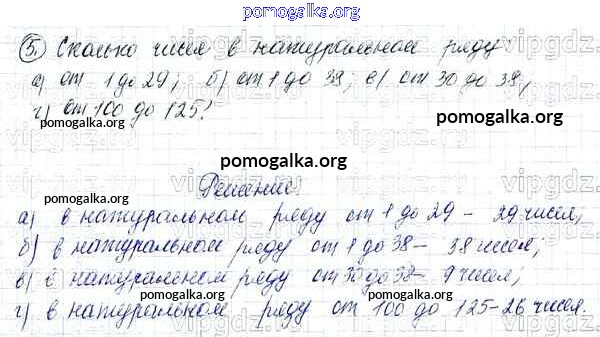 pomogalka.org
5. Сколько чисел в натуральном ряду
а) от 1 до 29; б) от 1 до 38; в) от 30 до 38;
г) от 100 до 125?
pomogalka.org
pomogalka.org
Решение.
pomogalka.org
а) в натуральном ряду от 1 до 29 – 29 чисел;
б) в натуральном ряду от 1 до 38 – 38 чисел;
в) в натуральном ряду от 30 до 38 – 9 чисел;
pomogalka.org pomogalka.org
г) в натуральном ряду от 100 до 125 – 26 чисел.